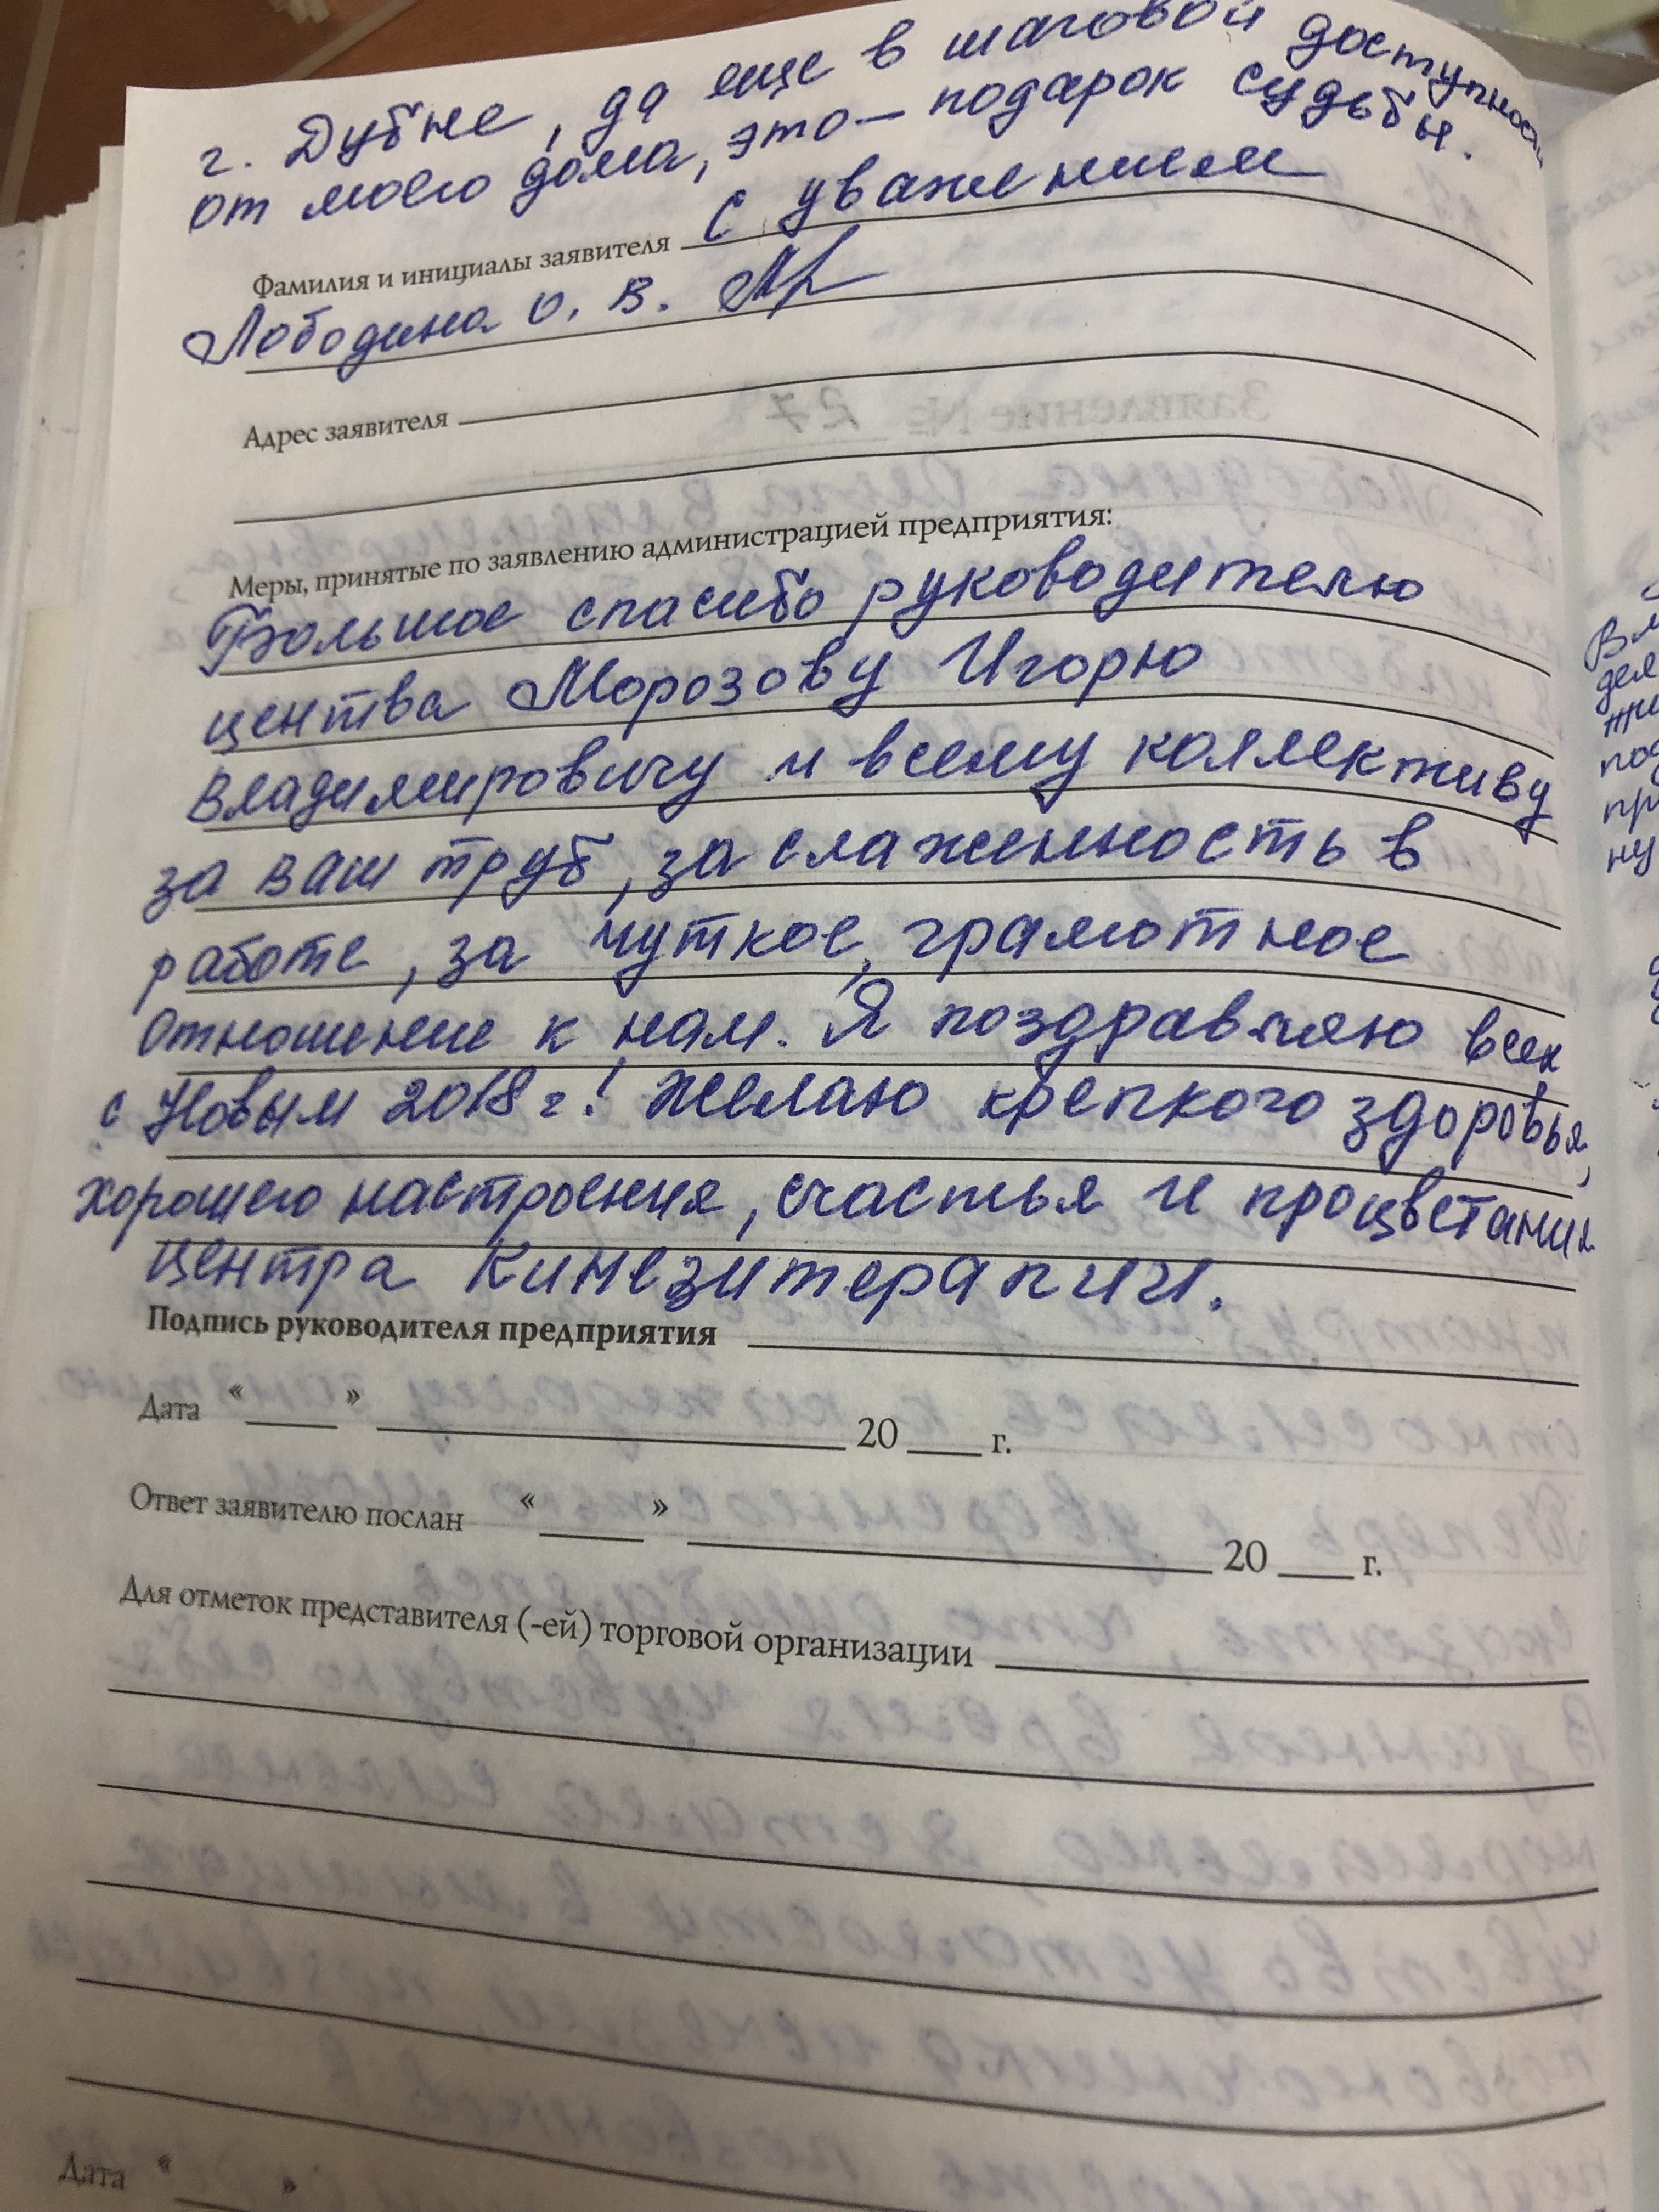 г. Дубне, да еще в шаговой доступности
от моего дома, это – подарок судьбы.
Фамилия и инициалы заявителя С уважением
Лободина О. В.
Адрес заявителя
Меры, принятые по заявлению администрацией предприятия:
Большое спасибо руководителю
центва Морозову Игорю
Владимировичу и всему коллективу
за ваш труб, за слаженность в
работе, за чуткое, грамотное
отношение к нам. Я поздравляю всех
с Новым 2018 г! Желаю крепкого здоровья,
хорошего настроения, счастья и процветания
центра Кинезитерапии.
Подпись руководителя предприятия
Дата « » 20 г.
Ответ заявителю послан « » 20 г.
Для отметок представителя (-ей) торговой организации
Дата « »